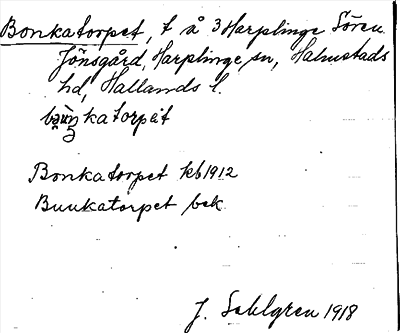 Bonkatorpet, t å 3 Harplinge Sören
Jönsgård, Harplinge sn, Halmstads
hd, Hallands l.
katorpet
Bonkatorpet kb 1912
Bunkatorpet bek
J. Sahlgren 1918